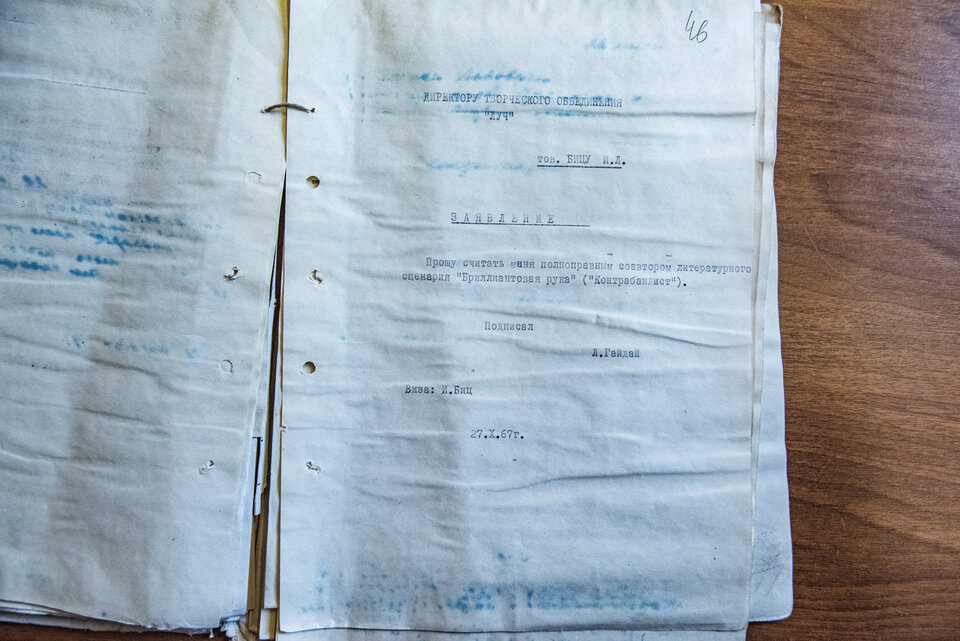 46
ДИРЕКТОРУ ТВОРЧЕСКОГО ОБЪЕДИНЕНИЯ
"ЛУЧ"
тов. БИЦУ И.Л.
ЗАЯВЛЕНИЕ
Прошу считать меня полноправным соавтором литературного
сценария "Бриллиантовая рука" ("Контрабандист").
Подписал
Л.Гайдай
Виза: И.Биц
27.X.67г.